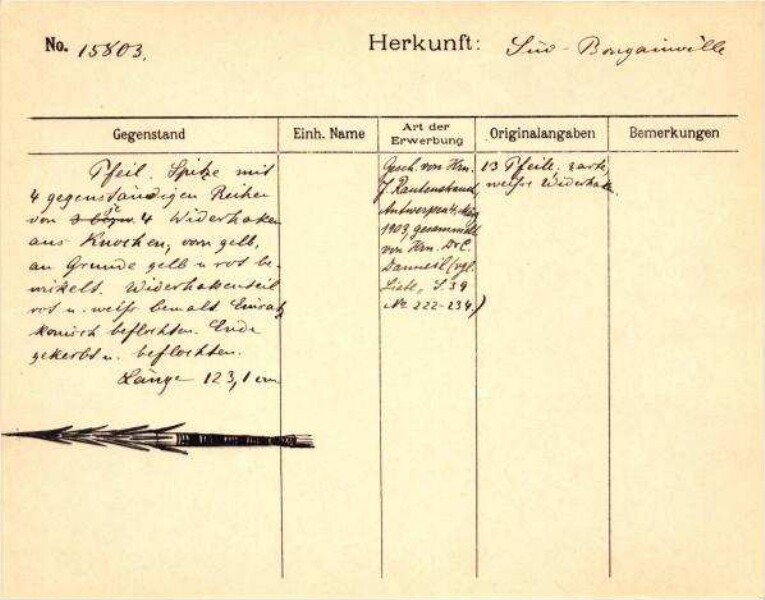 No. 15803.
Herkunft: Süd-Bougainville
Gegenstand
Einh. Name
Art der Erwerbung
Originalangaben
Bemerkungen
Pfeil. Spitze mit
4 gegenständigen Reihen
von je 4 Widerhaken
aus Knochen, vorn gelb,
an Grunde gelb u. rot be-
wickelt. Widerhakenteil
rot u. weiß bemalt. Einsatz
konisch beflochten. Ende
gekerbt u. beflochten.
Länge 123,1 cm
Gesch. von Hrn.
J. Rautenstrauch,
Antwerpen,
1903, gesammelt
von Hrn. Dr C.
Danneil (vgl.
Liste, S 39
No 222-234.)
13 Pfeile,
weiße Widerhak.